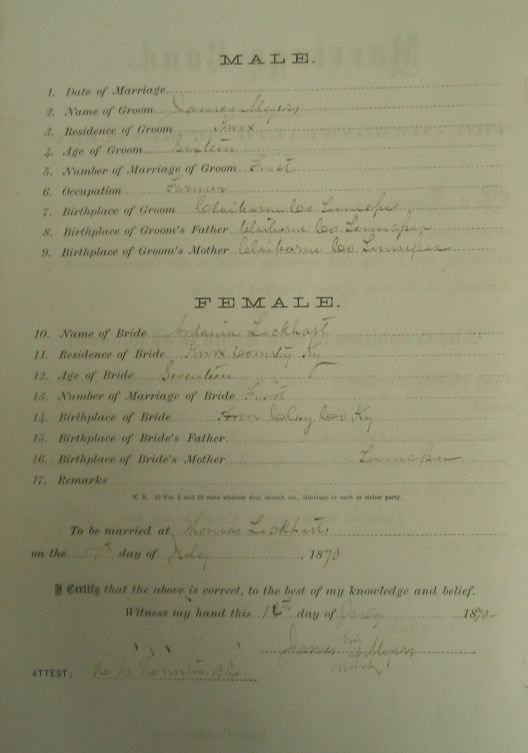 MALE.
1. Date of Marriage
2. Name of Groom James Myers
3. Residence of Groom Knox
4. Age of Groom
5. Number of Marriage of Groom First
6. Occupation Farmer
7. Birthplace of Groom Claiborne Co.
8. Birthplace of Groom's Father Claiborne Co.
9. Birthplace of Groom's Mother Claiborne Co.
FEMALE.
10. Name of Bride Lockhart
11. Residence of Bride Knox County Ky
12. Age of Bride
13. Number of Marriage of Bride First
14. Birthplace of Bride Clay Co Ky
15. Birthplace of Bride's Father
16. Birthplace of Bride's Mother
17. Remarks
N. B. At Nos 5 and 13 state whether first, second, etc., Marriage of each or either party.
To be married at Thomas Lockharts
on the 17th day of July, 1870
I Certify that the above is correct, to the best of my knowledge and belief.
Witness my hand this day of July 1870
his
James Myers
mark
ATTEST: